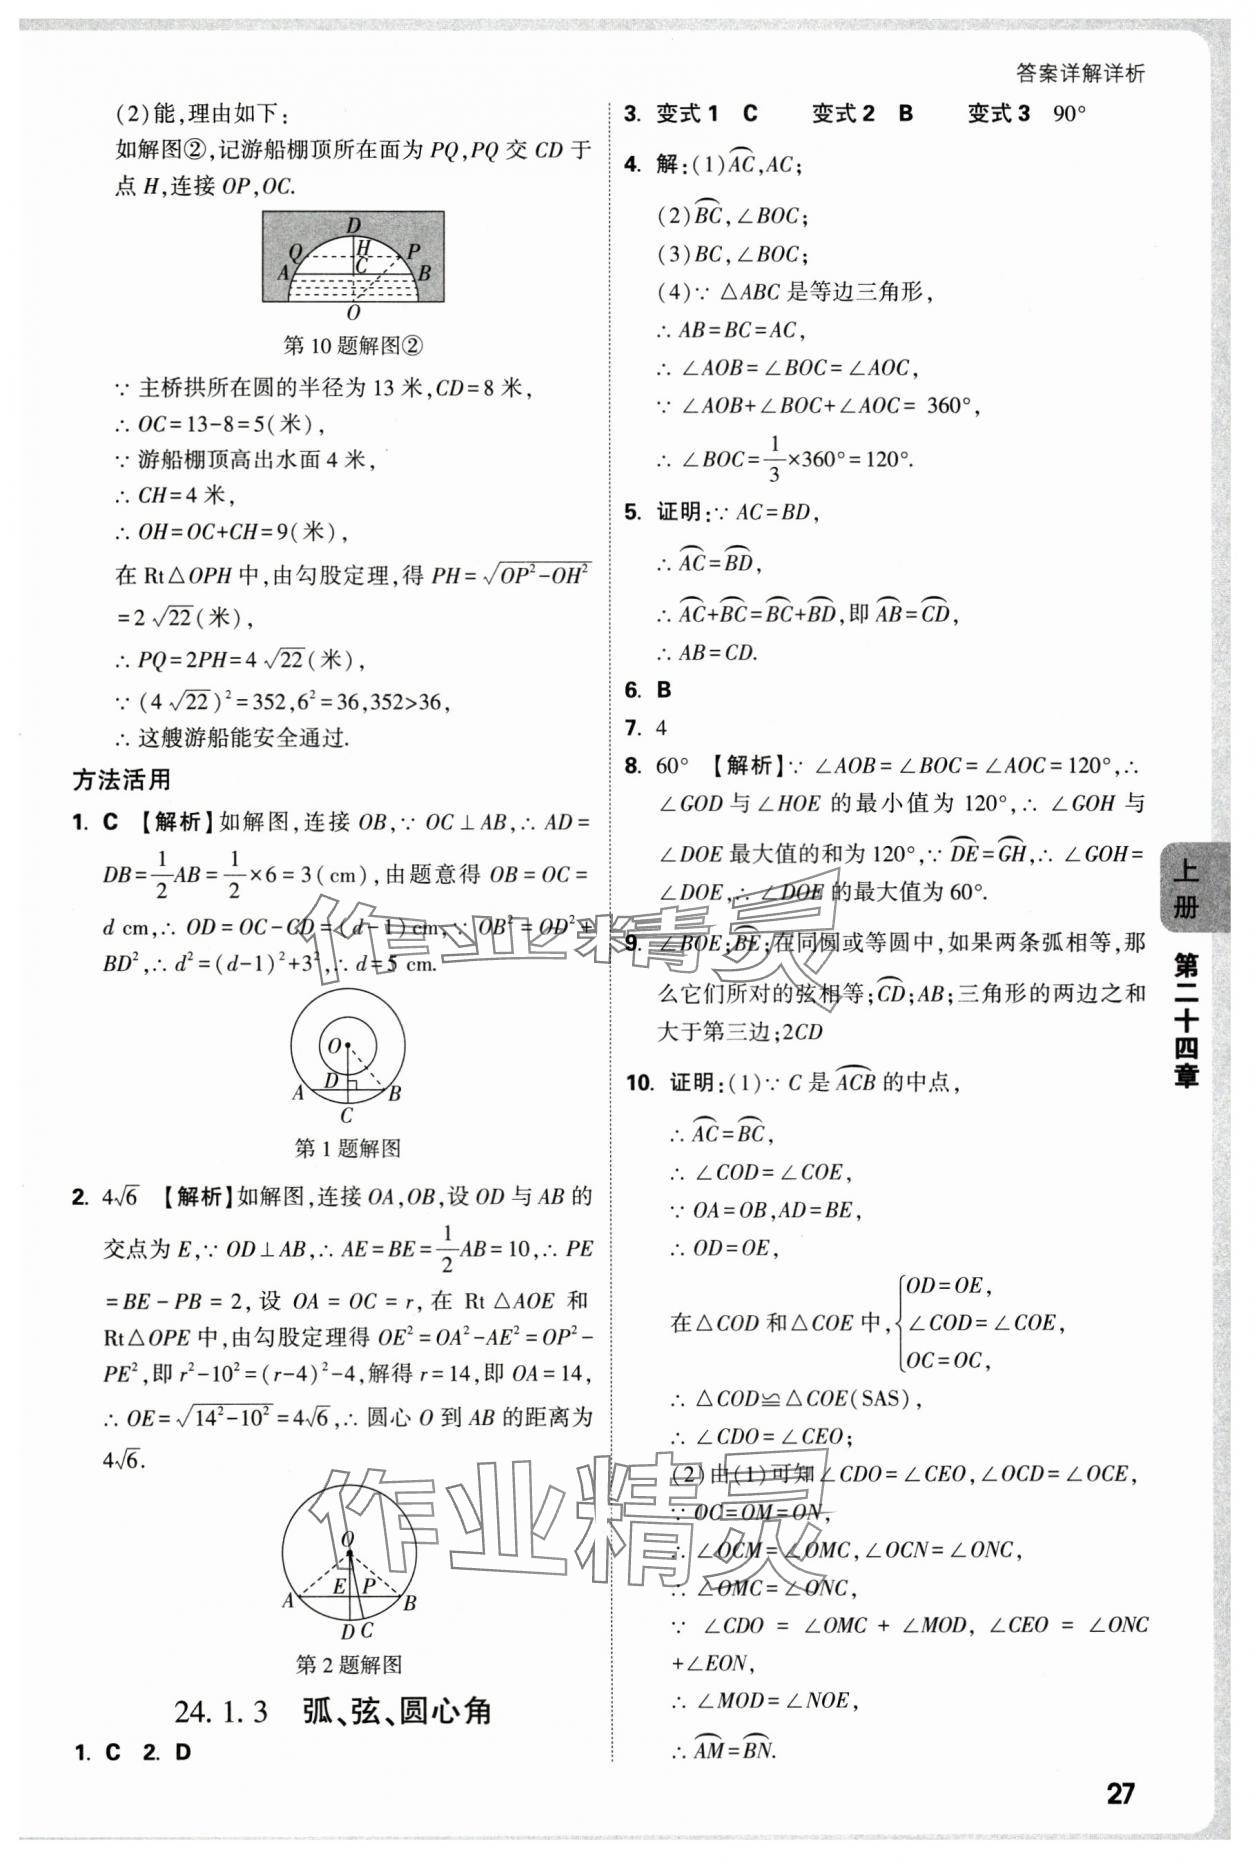 答案详解详析
(2)能,理由如下:
如解图②,记游船棚顶所在面为 PQ,PQ 交 CD 于
点 H,连接 OP,OC.
D
Q H P
A C B
O
第 10 题解图②
∵ 主桥拱所在圆的半径为 13 米,CD=8 米,
∴ OC=13-8=5(米),
∵ 游船棚顶高出水面 4 米,
∴ CH=4 米,
∴ OH=OC+CH=9(米),
在 Rt△OPH 中,由勾股定理,得 PH=√(OP²-OH²)
=2√22(米),
∴ PQ=2PH=4√22(米),
∵ (4√22)²=352,6²=36,352>36,
∴ 这艘游船能安全通过.
方法活用
1. C 【解析】如解图,连接 OB,∵ OC⊥AB,∴ AD=
DB=1/2AB=1/2×6=3(cm),由题意得 OB=OC=
d cm,∴ OD=OC-CD=(d-1)cm,∵ OB²=OD²+
BD²,∴ d²=(d-1)²+3²,∴ d=5 cm.
O
A D B
C
第 1 题解图
2. 4√6 【解析】如解图,连接 OA,OB,设 OD 与 AB 的
交点为 E,∵ OD⊥AB,∴ AE=BE=1/2AB=10,∴ PE
=BE-PB=2,设 OA=OC=r,在 Rt△AOE 和
Rt△OPE 中,由勾股定理得 OE²=OA²-AE²=OP²-
PE²,即 r²-10²=(r-4)²-4,解得 r=14,即 OA=14,
∴ OE=√(14²-10²)=4√6,∴ 圆心 O 到 AB 的距离为
4√6.
O
A E P B
D C
第 2 题解图
24. 1. 3 弧、弦、圆心角
1. C 2. D
3. 变式 1 C 变式 2 B 变式 3 90°
4. 解:(1)A͡C,AC;
(2)B͡C,∠BOC;
(3)BC,∠BOC;
(4)∵ △ABC 是等边三角形,
∴ AB=BC=AC,
∴ ∠AOB=∠BOC=∠AOC,
∵ ∠AOB+∠BOC+∠AOC= 360°,
∴ ∠BOC=1/3×360°=120°.
5. 证明:∵ AC=BD,
∴ A͡C=B͡D,
∴ A͡C+B͡C=B͡C+B͡D,即 A͡B=C͡D,
∴ AB=CD.
6. B
7. 4
8. 60° 【解析】∵ ∠AOB=∠BOC=∠AOC=120°,∴
∠GOD 与∠HOE 的最小值为 120°,∴ ∠GOH 与
∠DOE 最大值的和为 120°,∵ D͡E=G͡H,∴ ∠GOH=
∠DOE,∴ ∠DOE 的最大值为 60°.
9. ∠BOE;B͡E;在同圆或等圆中,如果两条弧相等,那
么它们所对的弦相等;C͡D;AB;三角形的两边之和
大于第三边;2CD
10. 证明:(1)∵ C 是 A͡CB 的中点,
∴ A͡C=B͡C,
∴ ∠COD=∠COE,
∵ OA=OB,AD=BE,
∴ OD=OE,
在△COD 和△COE 中,{OD=OE,
∠COD=∠COE,
OC=OC,
∴ △COD≌△COE(SAS),
∴ ∠CDO=∠CEO;
(2)由(1)可知∠CDO=∠CEO,∠OCD=∠OCE,
∵ OC=OM=ON,
∴ ∠OCM=∠OMC,∠OCN=∠ONC,
∴ ∠OMC=∠ONC,
∵ ∠CDO = ∠OMC + ∠MOD, ∠CEO = ∠ONC
+∠EON,
∴ ∠MOD=∠NOE,
∴ A͡M=B͡N.
上册
第二十四章
27
作业精灵
作业精灵